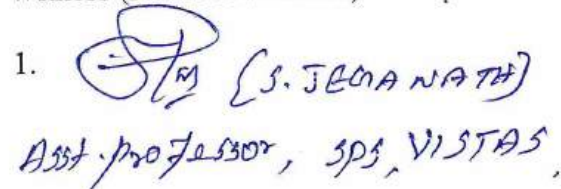 1. {S. JEGANATH}
Asst. professor, SPS, VISTAS,